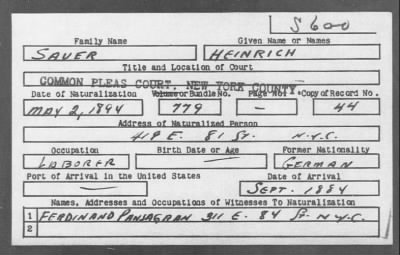 S600
Family Name Given Name or Names
SAUER HEINRICH
Title and Location of Court
COMMON PLEAS COURT, NEW YORK COUNTY
Date of Naturalization Volume or Bundle No. Page No. Copy of Record No.
MAY 2, 1894 779 — 44
Address of Naturalized Person
418 E. 81 ST. N.Y.C.
Occupation Birth Date or Age Former Nationality
LABORER — GERMAN
Port of Arrival in the United States Date of Arrival
— SEPT. 1884
Names, Addresses and Occupations of Witnesses To Naturalization
1 FERDINAND 311 E. 84 ST. N.Y.C.
2